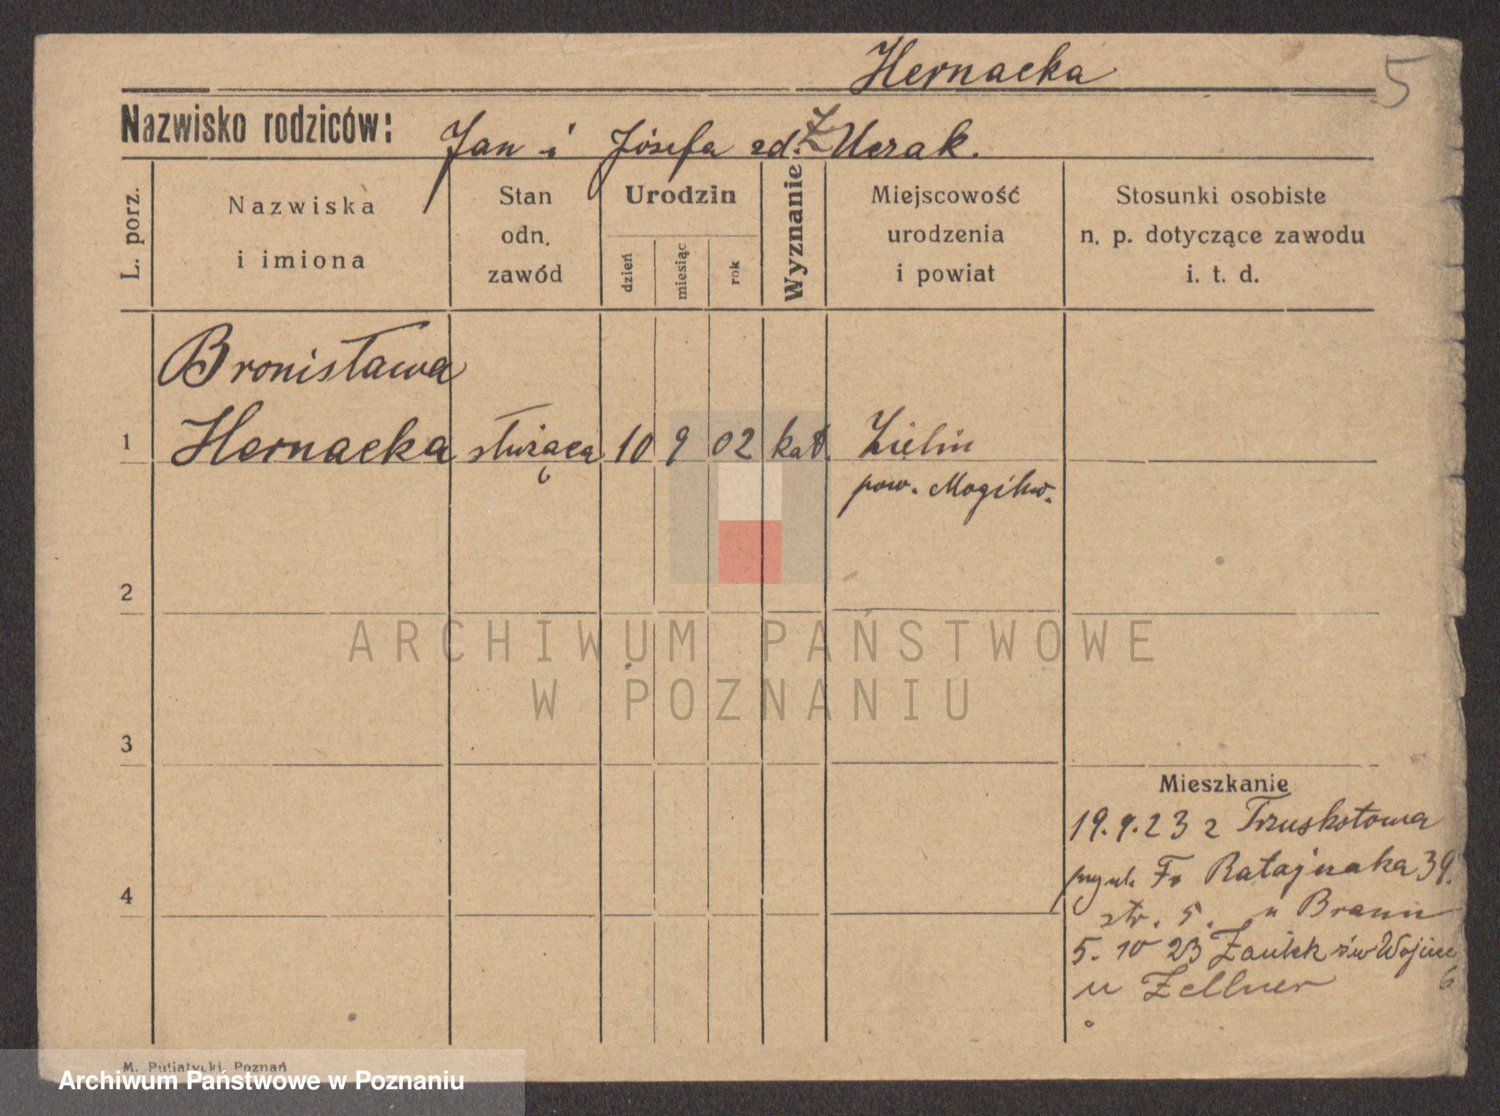 Hernacka
5
Nazwisko rodziców: Jan i Józefa zd. Uczak.
L. porz.
Nazwiska i imiona
Stan odn. zawód
Urodzin
dzień
miesiąc
rok
Wyznanie
Miejscowość urodzenia i powiat
Stosunki osobiste n. p. dotyczące zawodu i. t. d.
Bronisława
1 Hernacka służąca 10 9 02 kat. Zielin
pow. Mogiln.
2
ARCHIWUM PAŃSTWOWE
W POZNANIU
3
Mieszkanie
19.9.23 z
Fr. Ratajczaka 39.
str. 5. u Braun
4
5. 10 23 Zaułek św Wojciec
6
u Zellner
M. Putiatycki, Poznań
Archiwum Państwowe w Poznaniu